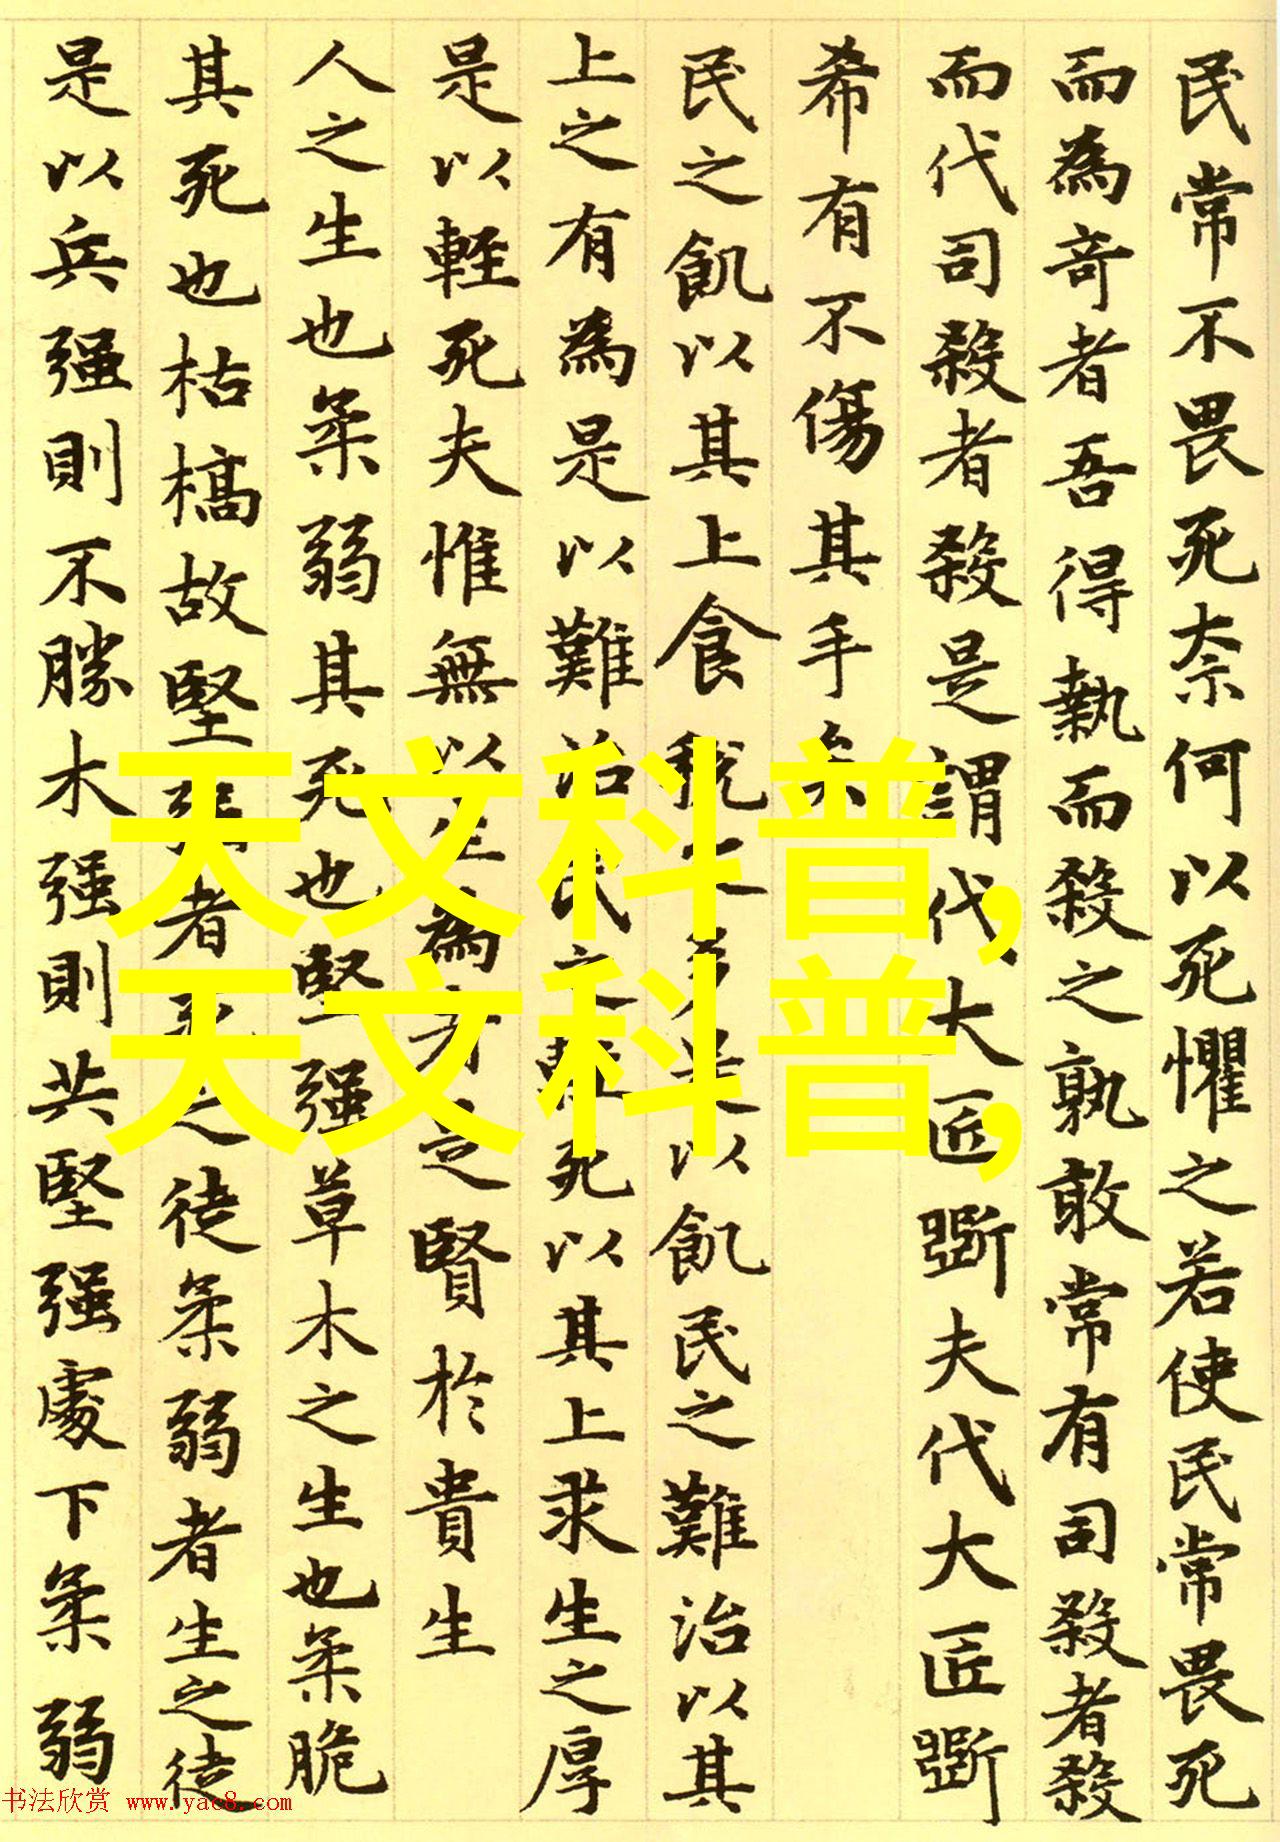 民常不畏死奈何以死懼之若使民常畏死
而為奇者吾得執而殺之孰敢常有司殺者殺
而代司殺者殺是謂代大匠斲夫代大匠斲
希有不傷其手矣
民之飢以其上食稅之多是以飢民之難治以其
上之有為是以難治民之輕死以其上求生之厚
是以輕死夫惟無以生為者是賢於貴生
人之生也柔弱其死也堅强草木之生也柔脆
其死也枯槁故堅强者死之徒柔弱者生之徒
是以兵强則不勝木强則共堅强處下柔弱
天文科普,
天文科普,
书法欣赏 www.yac8.com